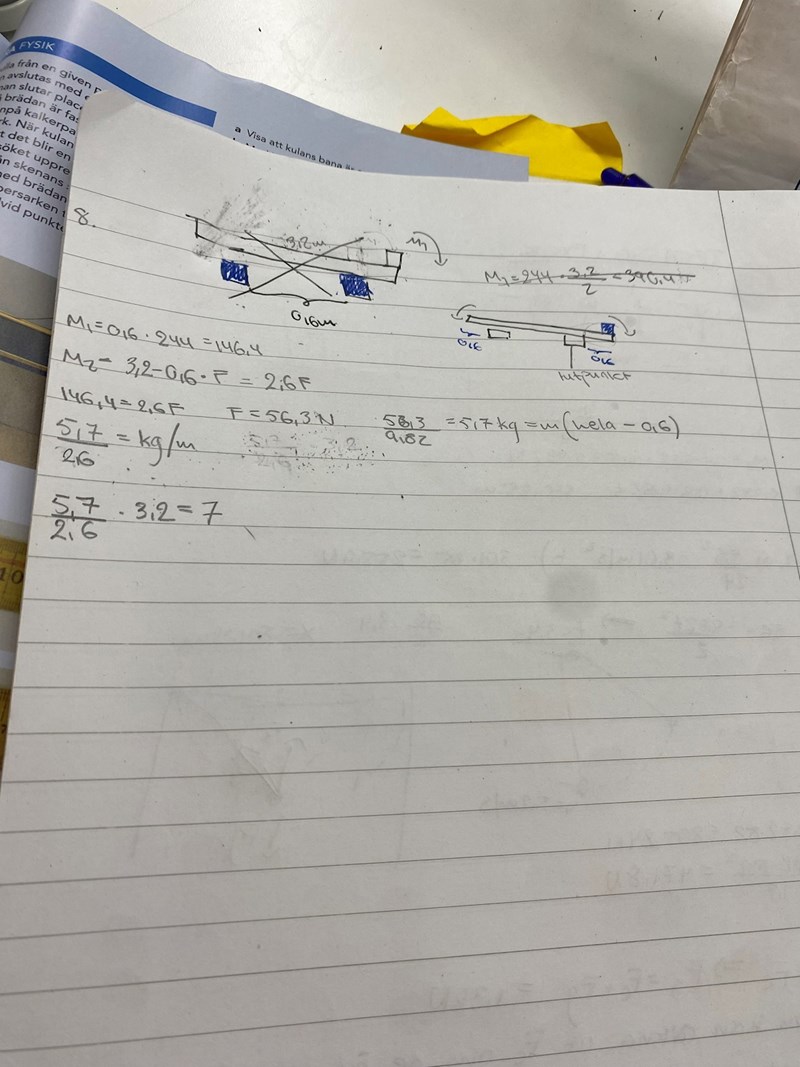 FYSIK
från en given
avslutas med
slutar plac
brädan är fa
på kalkerpa
rk. När kulan
t det blir en
söket uppre
ån skenans
ned brädan
persarken
vid punkt
a Visa att kulans bana är
8.
3,2m
M₁
0,6m
M₁=244 · 3,2/2 = 390,4
0,6
0,6
M₁=0,6 · 244 = 146,4
M₂ = 3,2-0,6 · F = 2,6F
146,4=2,6F F=56,3N 56,3/9,82 = 5,7 kg = m (hela - 0,6)
5,7/2,6 = kg/m
5,7/2,6 · 3,2 = 7
10